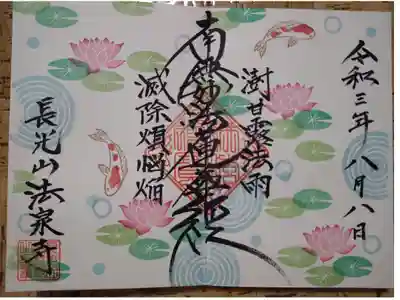 令和三年 八月八日
澍甘露法雨
南無妙法蓮華経
滅除煩悩焔
長光山法泉寺